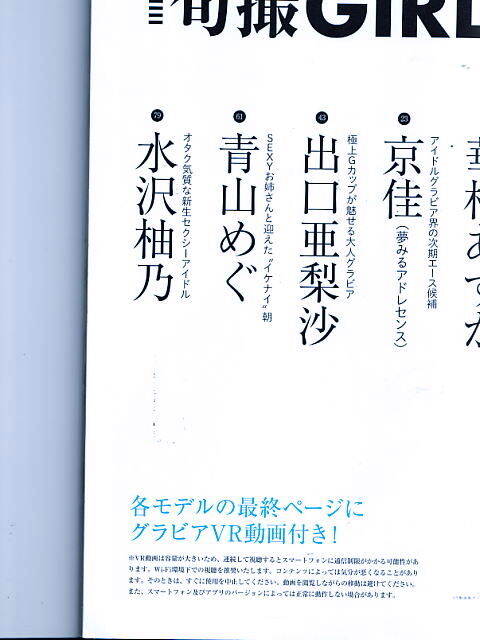 旬撮GIRL
23
アイドルグラビア界の次期エース候補
京佳(夢みるアドレセンス)
43
極上Gカップが魅せる大人グラビア
出口亜梨沙
61
SEXYお姉さんと迎えた“イケナイ”朝
青山めぐ
79
オタク気質な新生セクシーアイドル
水沢柚乃
各モデルの最終ページに
グラビアVR動画付き!
※VR動画は容量が大きいため、連続して視聴するとスマートフォンに通信制限がかかる可能性があ
ります。Wi-Fi環境下での視聴を推奨いたします。コンテンツによっては気分が悪くなることがあり
ます。そのときは、すぐに使用を中止してください。動画を閲覧しながらの移動は避けてください。
また、スマートフォン及びアプリのバージョンによっては正常に動作しない場合があります。